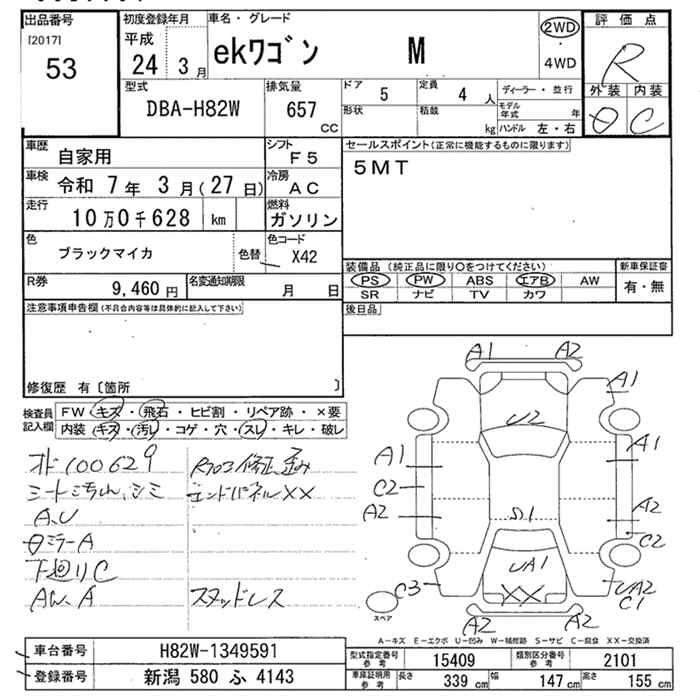 出品番号
[2017]
53
初度登録年月
平成
24 3月
車名・グレード
ekワゴン M
2WD
・
4WD
評価点
R
外装 内装
C
型式
DBA-H82W
排気量
657
cc
ドア
5
定員
4 人
ディーラー・並行
形状
積載
kg
モデル年式 年
ハンドル 左・右
車歴
自家用
シフト
F5
車検
令和 7年 3月(27日)
冷房
AC
走行
10万0千628 km
燃料
ガソリン
色
ブラックマイカ
色替
色コード
X42
R券
9,460 円
名変通知期限
月 日
セールスポイント(正常に機能するものに限ります)
5MT
装備品(純正品に限り○をつけてください)
PS PW ABS エアB AW
SR ナビ TV カワ
新車保証書
有・無
後日品
注意事項申告欄(不具合内容等は具体的に記入して下さい)
修復歴 有〔箇所 〕
検査員
記入欄
FW キズ・飛石・ヒビ割・リペア跡・×要
内装 キズ・汚レ・コゲ・穴・スレ・キレ・破レ
オド100629
シートよごれ、シミ
A、U
ミラーA
下廻りC
AW、A
修正、歪み
エンドパネルXX
スタッドレス
A1 A2
A1
U2
A1 A1
C2
A2 A2
S1
C2
UA1
XX
C3
UA2
C1
A2 A2
スペア
A-キズ E-エクボ U-凹み W-補修跡 S-サビ C-腐食 XX-交換済
車台番号
H82W-1349591
登録番号
新潟 580 ふ 4143
型式指定番号
参考
15409
類別区分番号
参考
2101
車庫証明用
参考
長さ 339 cm
幅 147 cm
高さ 155 cm